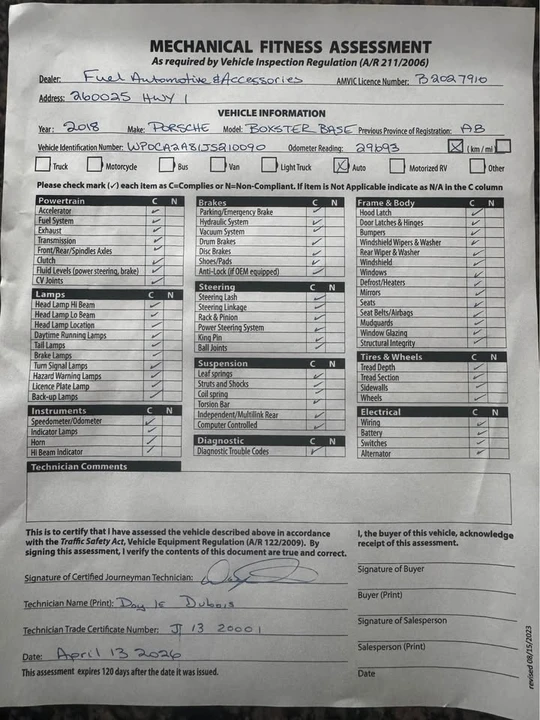 MECHANICAL FITNESS ASSESSMENT
As required by Vehicle Inspection Regulation (A/R 211/2006)
Dealer: Fuel Automotive & Accessories AMVIC Licence Number: B2027910
Address: 260025 HWY 1
VEHICLE INFORMATION
Year: 2018 Make: PORSCHE Model: BOXSTER BASE Previous Province of Registration: AB
Vehicle Identification Number: WP0CA2A81JS210090 Odometer Reading: 29693 (km / mi)
Truck Motorcycle Bus Van Light Truck Auto Motorized RV Other
Please check mark (✓) each Item as C=Complies or N=Non-Compliant. If item is Not Applicable indicate as N/A in the C column
Powertrain C N
Accelerator
Fuel System
Exhaust
Transmission
Front/Rear/Spindles Axles
Clutch
Fluid Levels (power steering, brake)
CV Joints
Lamps C N
Head Lamp Hi Beam
Head Lamp Lo Beam
Head Lamp Location
Daytime Running Lamps
Tail Lamps
Brake Lamps
Turn Signal Lamps
Hazard Warning Lamps
Licence Plate Lamp
Back-up Lamps
Instruments C N
Speedometer/Odometer
Indicator Lamps
Horn
Hi Beam Indicator
Brakes C N
Parking/Emergency Brake
Hydraulic System
Vacuum System
Drum Brakes
Disc Brakes
Shoes/Pads
Anti-Lock (if OEM equipped)
Steering C N
Steering Lash
Steering Linkage
Rack & Pinion
Power Steering System
King Pin
Ball Joints
Suspension C N
Leaf springs
Struts and Shocks
Coil spring
Torsion Bar
Independent/Multilink Rear
Computer Controlled
Diagnostic C N
Diagnostic Trouble Codes
Frame & Body C N
Hood Latch
Door Latches & Hinges
Bumpers
Windshield Wipers & Washer
Rear Wiper & Washer
Windshield
Windows
Defrost/Heaters
Mirrors
Seats
Seat Belts/Airbags
Mudguards
Window Glazing
Structural Integrity
Tires & Wheels C N
Tread Depth
Tread Section
Sidewalls
Wheels
Electrical C N
Wiring
Battery
Switches
Alternator
Technician Comments
This is to certify that I have assessed the vehicle described above in accordance
with the Traffic Safety Act, Vehicle Equipment Regulation (A/R 122/2009). By
signing this assessment, I verify the contents of this document are true and correct.
Signature of Certified Journeyman Technician:
Technician Name (Print): Dubois
Technician Trade Certificate Number: JT 13 20001
Date: April 13 2026
This assessment expires 120 days after the date it was issued.
I, the buyer of this vehicle, acknowledge
receipt of this assessment.
Signature of Buyer
Buyer (Print)
Signature of Salesperson
Salesperson (Print)
Date
revised 08/15/2023